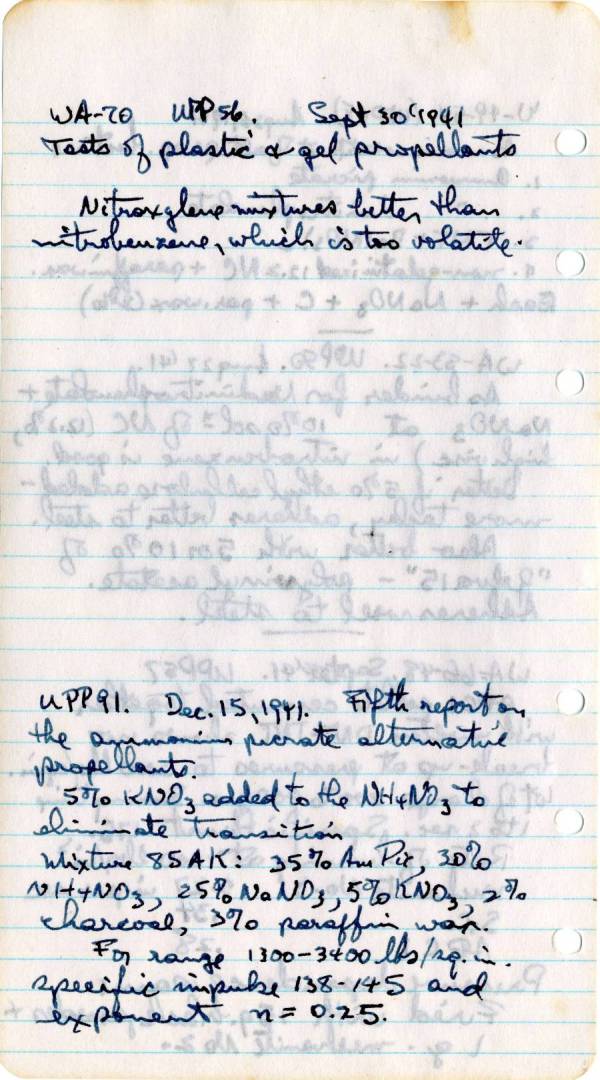 WA-70 UPP 56. Sept 30 1941
Tests of plastic & gel propellants
Nitroxylene mixtures better than
nitrobenzene, which is too volatile.
UPP 91. Dec. 15, 1941. Fifth report on
the ammonium picrate alternative
propellants.
5% KNO3 added to the NH4NO3 to
eliminate transition
Mixture 85AK: 35% Am Pic, 30%
NH4NO3, 25% NaNO3, 5% KNO3, 2%
charcoal, 3% paraffin wax.
For range 1300-3400 lbs/sq. in.
specific impulse 138-145 and
exponent n = 0.25.